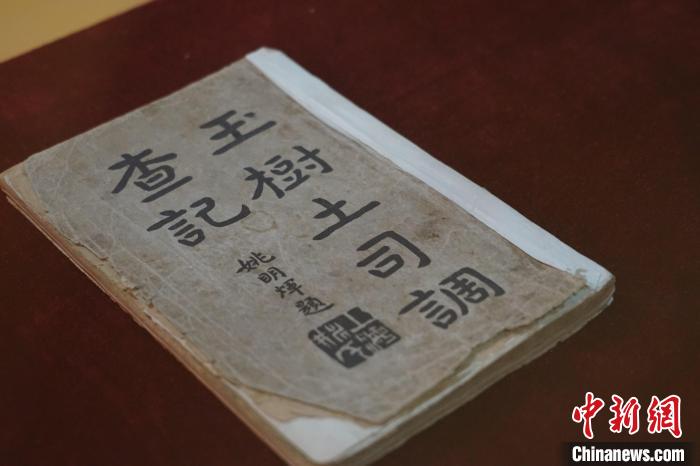 玉樹土司調
查記
姚明煇題
中新网
Chinanews.com